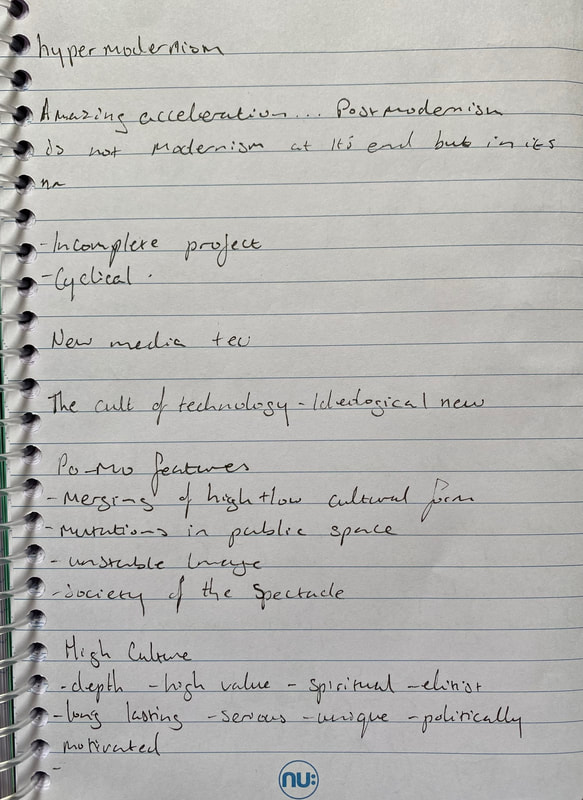 hypermodernism
Amazing acceleration... Postmodernism
is not modernism at it's end but in its
- Incomplete project
- Cyclical .
New media
The cult of technology - Ideological new
Po-Mo features
- Merging of high + low cultural form
- mutations in public space
- unstable Image
- Society of the Spectacle
High Culture
- depth - high value - spiritual - elitist
- long lasting - serious - unique - politically
motivated
-
nu: